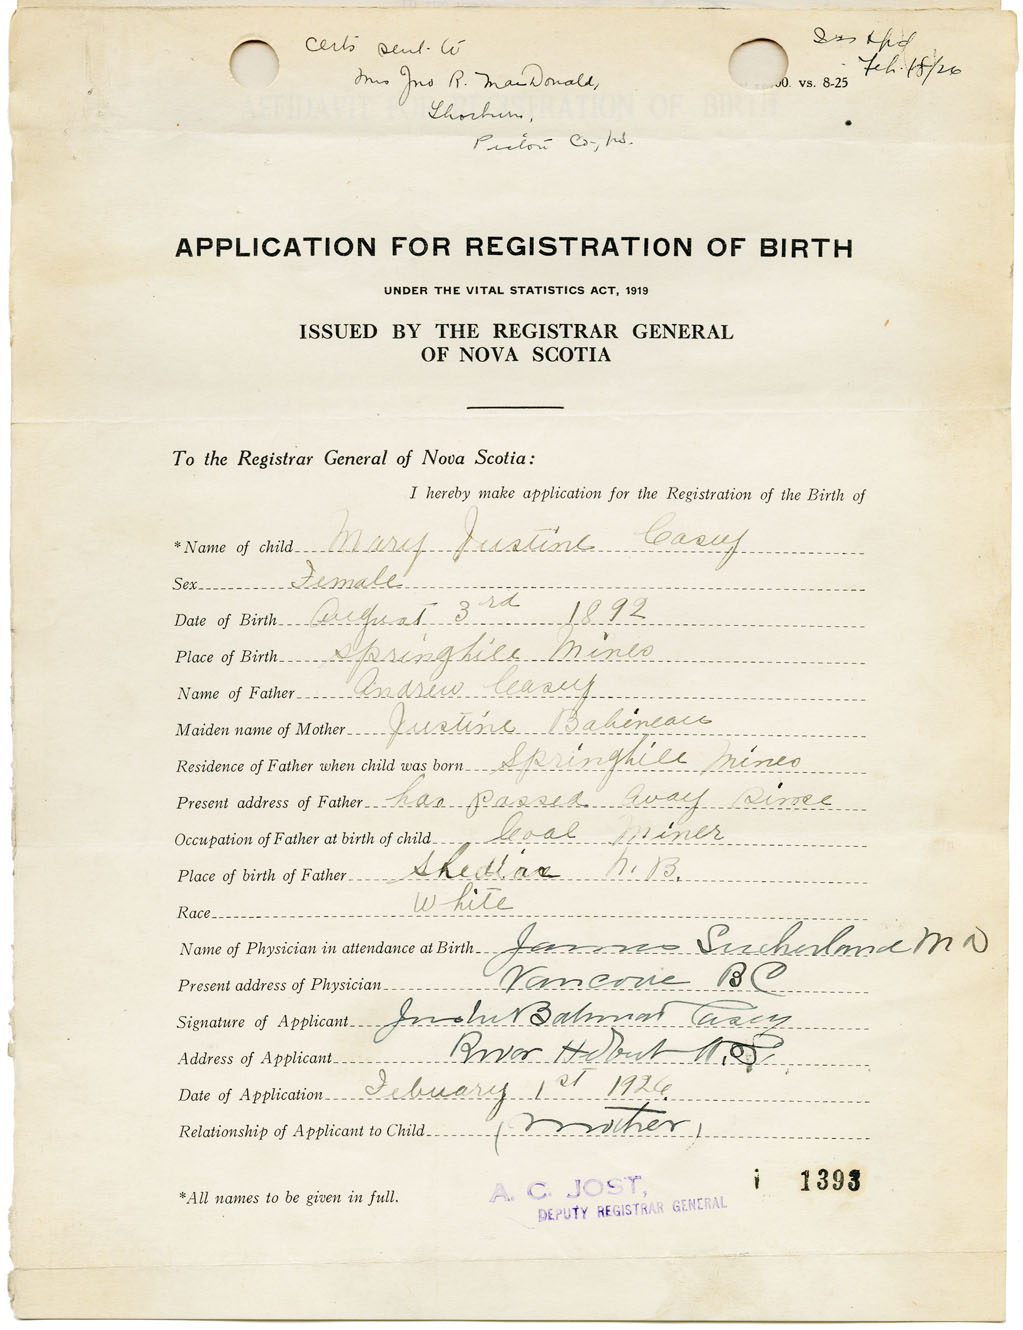 Certs sent to
Mrs Jno R. MacDonald,
Thorburn,
Pictou Co., N.S.
Feb. 18/26
00. vs. 8-25
APPLICATION FOR REGISTRATION OF BIRTH
UNDER THE VITAL STATISTICS ACT, 1919
ISSUED BY THE REGISTRAR GENERAL
OF NOVA SCOTIA
To the Registrar General of Nova Scotia:
I hereby make application for the Registration of the Birth of
*Name of child Mary Justine Casey
Sex Female
Date of Birth August 3rd 1892
Place of Birth Springhill Mines
Name of Father Andrew Casey
Maiden name of Mother Justine Babineau
Residence of Father when child was born Springhill Mines
Present address of Father has passed away since
Occupation of Father at birth of child Coal Miner
Place of birth of Father Shediac N.B.
Race White
Name of Physician in attendance at Birth Sutherland M D
Present address of Physician B C
Signature of Applicant Casey
Address of Applicant River Hebert N.S.
Date of Application Febuary 1st 1926
Relationship of Applicant to Child (Mother)
*All names to be given in full.
A. C. JOST,
DEPUTY REGISTRAR GENERAL
1393